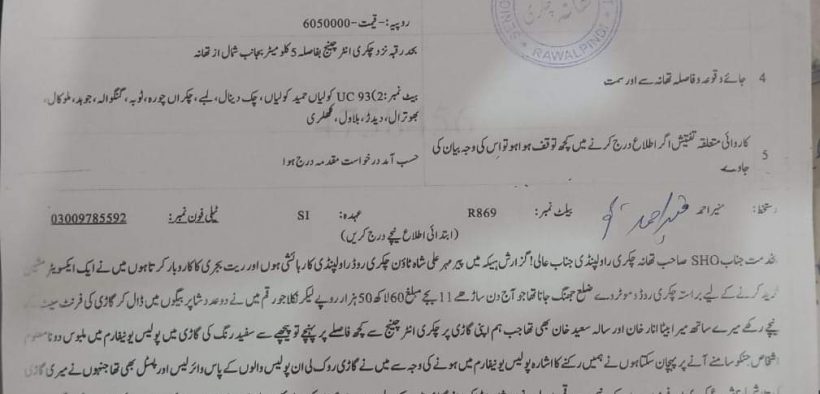 روپیہ:- قیمت-6050000
RAWALPINDI
4 جائے وقوعہ و فاصلہ تھانہ سے اور سمت
بحد رقبہ نزد چکری انٹر چینج بفاصلہ 5 کلو میٹر بجانب شمال از تھانہ
بیٹ نمبر:2) UC 93 کولیاں حمید کولیاں، چک دینال، لبے، چکراں چورہ، ٹوبہ، گنگوالہ، جوہد، ملوکال،
بھوترال، دیدڑ، بلاول،
5 کاروائی متعلقہ تفتیش اگر اطلاع درج کرنے میں کچھ توقف ہوا ہو تو اس کی وجہ بیان کی
جاوے
حسب آمد درخواست مقدمہ درج ہوا
دستخط: منیر احمد بیلٹ نمبر: R869 عہدہ: SI ٹیلی فون نمبر: 03009785592
(ابتدائی اطلاع نیچے درج کریں)
بخدمت جناب SHO صاحب تھانہ چکری راولپنڈی جناب عالی! گزارش ہیکہ میں پیر مہر علی شاہ ٹاؤن چکری روڈ راولپنڈی کا رہائشی ہوں اور ریت بجری کا کاروبار کرتا ہوں میں نے ایک ایکسویٹر مشین
خرید کرنے کے لیے براستہ چکری روڈ و موٹروے ضلع جھنگ جانا تھا جو آج دن ساڑھے 11 بجے مبلغ 60 لاکھ 50 ہزار روپے لیکر نکلا جو رقم میں نے دو عدد شاپر بیگوں میں ڈال کر گاڑی کی فرنٹ سیٹ کے
نیچے رکھے میرے ساتھ میرا بیٹا انار خان اور سالہ سعید خان بھی تھا جب ہم اپنی گاڑی پر چکری انٹر چینج سے کچھ فاصلے پر پہنچے تو پیچھے سے سفید رنگ کی گاڑی میں پولیس یونیفارم میں ملبوس دو نامعلوم
اشخاص جنکو سامنے آنے پر پہچان سکتا ہوں نے ہمیں رکنے کا اشارہ پولیس یونیفارم میں ہونے کی وجہ سے میں نے گاڑی روک لی ان پولیس والوں کے پاس وائرلیس اور پسٹل بھی تھا جنہوں نے میری گاڑی